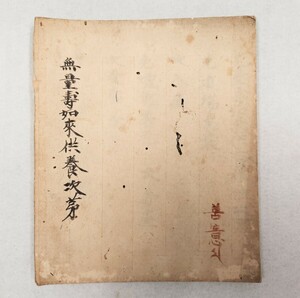 無量壽如來供養次第
善意